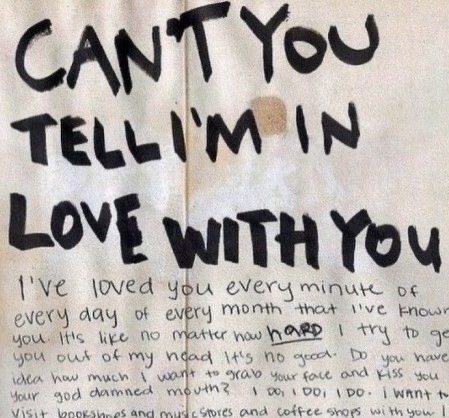 CAN'T YOU
TELL I'M IN
LOVE WITH YOU
I've loved you every minute of
every day of every month that I've known
you. It's like no matter how hARD I try to ge
you out of my head It's no good. Do you have
idea how much I want to grab your face and kiss you
your god damned mouth? I DO, I DO, I DO. I want to
visit bookshops and music stores and coffee shops with you. I